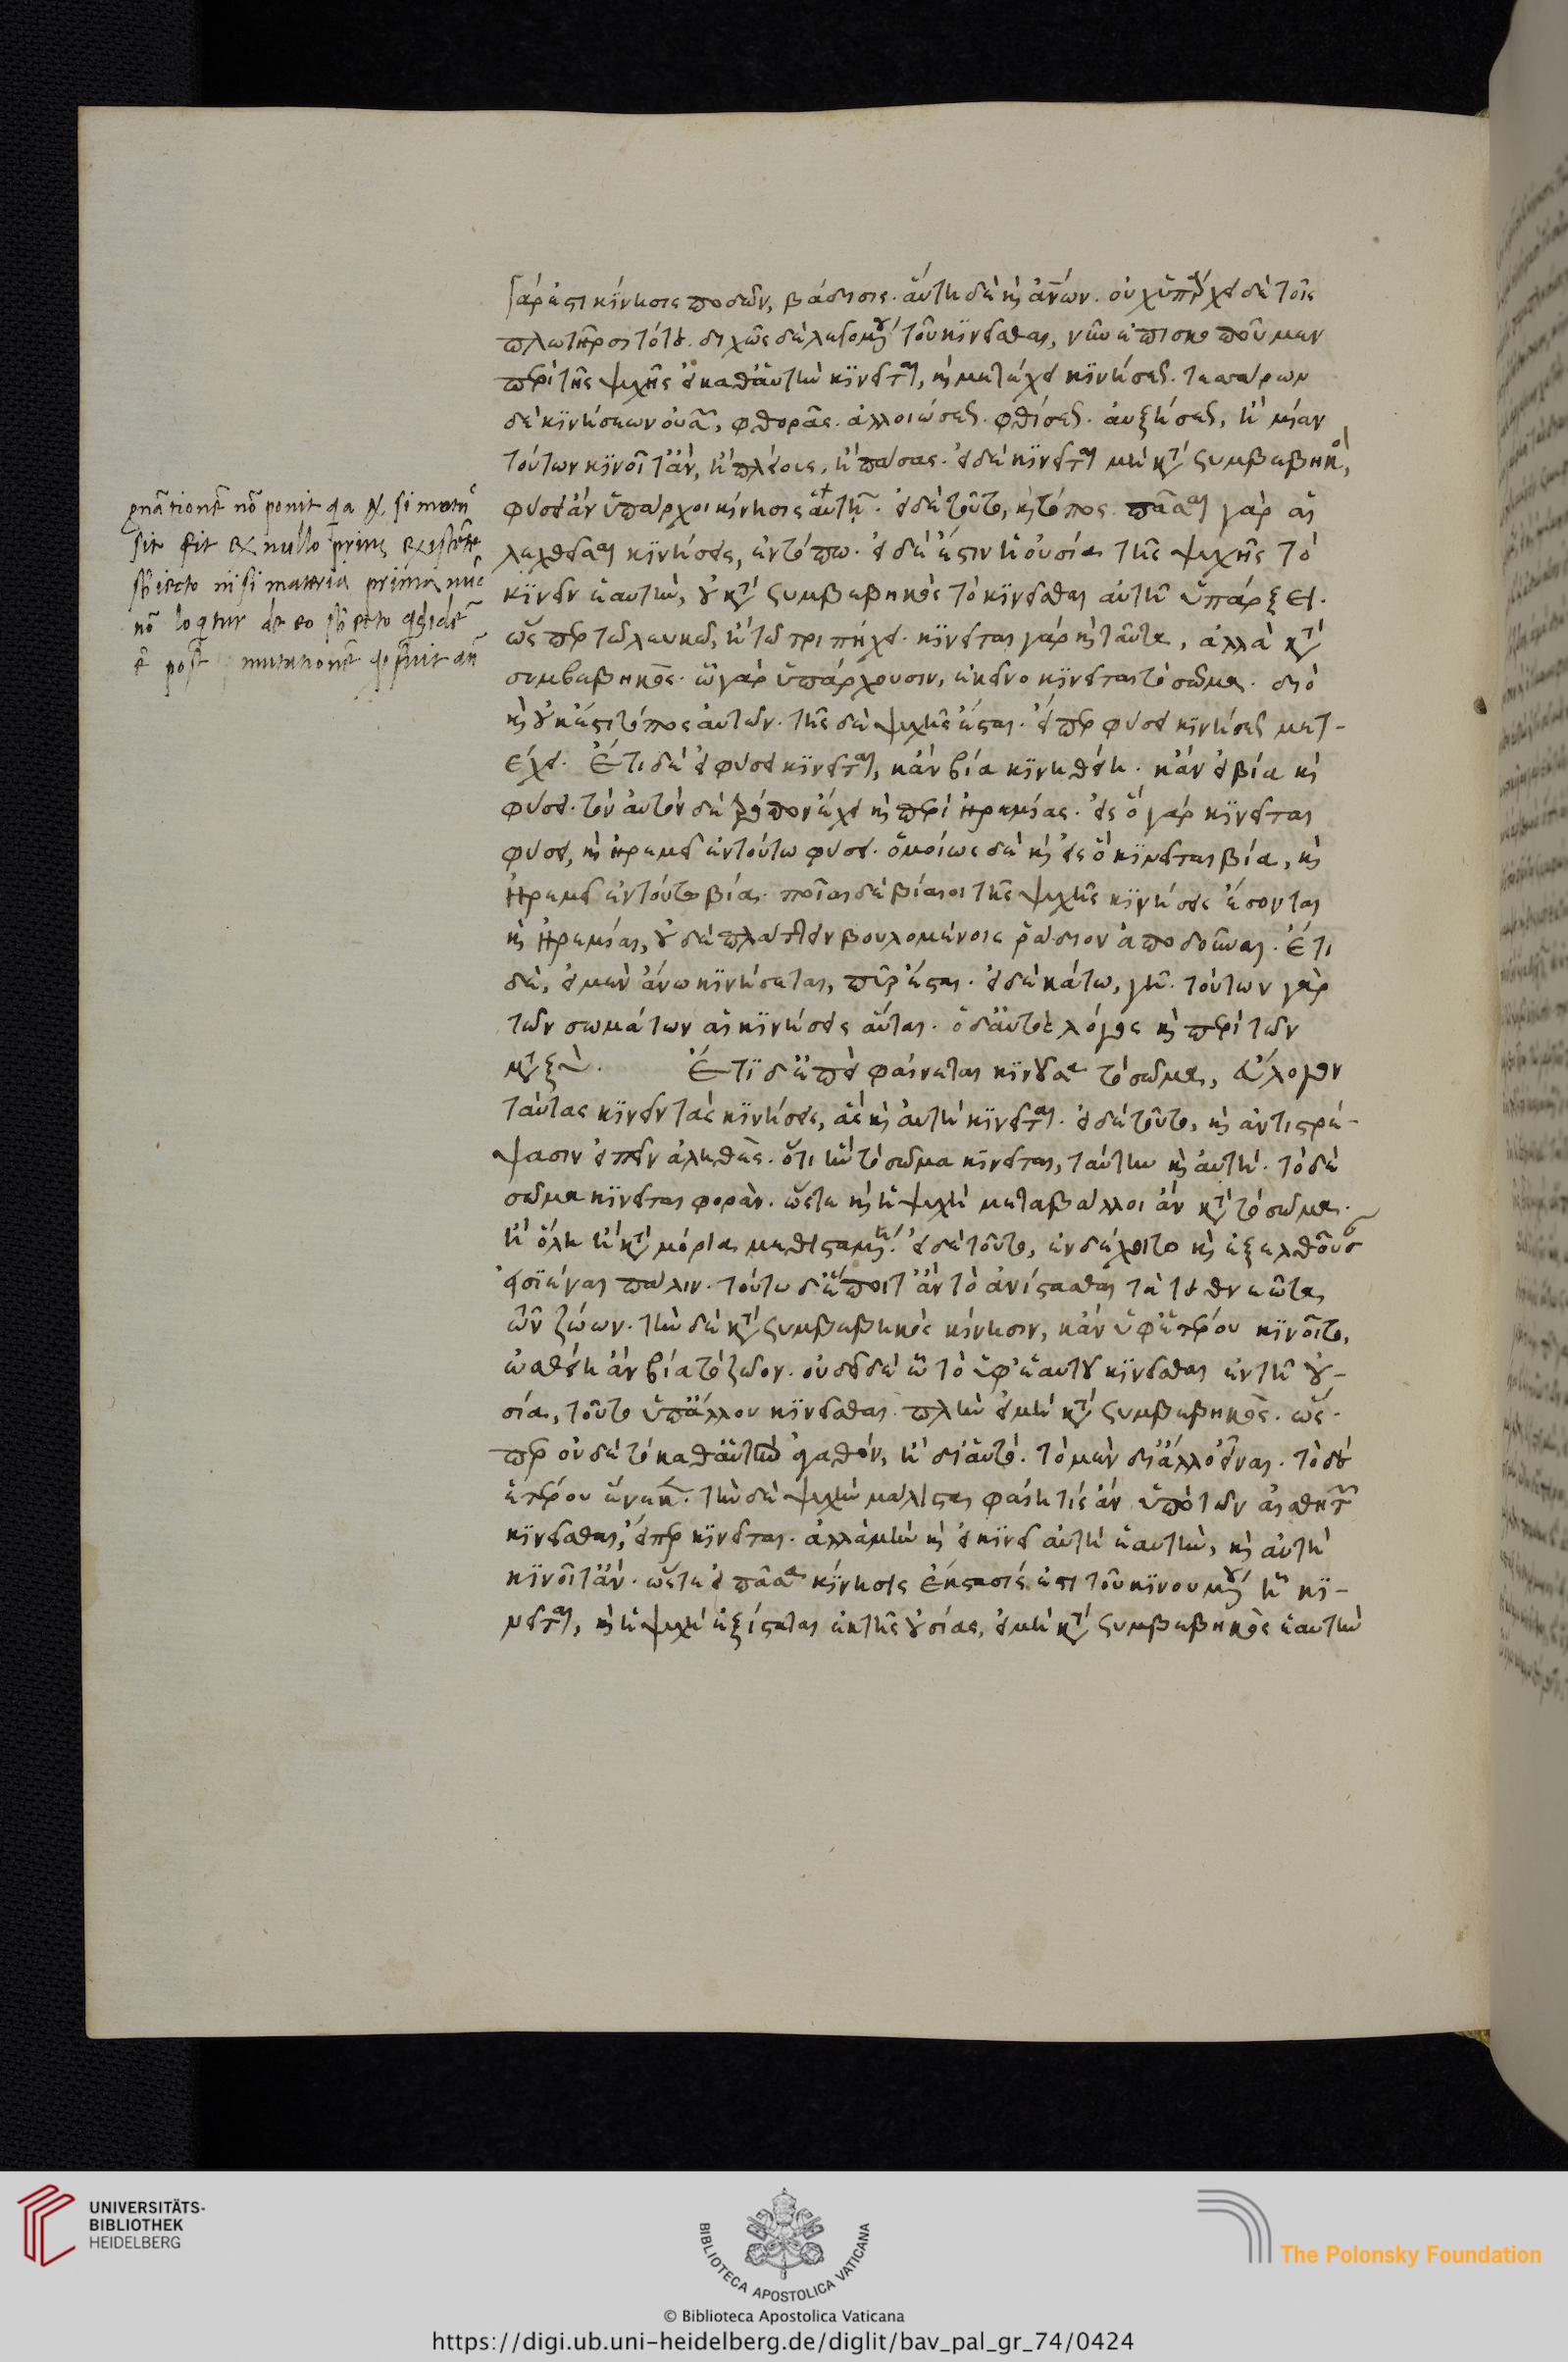 γάρ ἐστι κίνησις ποδῶν, βάδισις. αὕτη δὲ καὶ ἀνων. οὐχ ὑπάρχει δὲ τοῖς
πλωτῆρσι τότε. διχῶς δὲ λεγομένου τοῦ κινεῖσθαι, νῦν ἐπισκοποῦμεν
περὶ τῆς ψυχῆς εἰ καθ' αὑτὴν κινεῖται, καὶ μετέχει κινήσεως. τεσσάρων
δὲ κινήσεων οὐσῶν, φθορᾶς. ἀλλοιώσεως. φθίσεως. αὐξήσεως, ἢ μίαν
τούτων κινοῖτ' ἄν, ἢ πλείους, ἢ πάσας. εἰ δὲ κινεῖται μὴ κατὰ συμβεβηκός,
φύσει ἂν ὑπάρχοι κίνησις αὐτῇ. εἰ δὲ τοῦτο, καὶ τόπος. πᾶσαι γὰρ αἱ
λεχθεῖσαι κινήσεις, ἐν τόπω. εἰ δέ ἐστιν ἡ οὐσία τῆς ψυχῆς τὸ
κινεῖν ἑαυτὴν, οὐ κατὰ συμβεβηκὸς τὸ κινεῖσθαι αὐτῇ ὑπάρξει.
ὥσπερ τῶ λευκῶ, ἢ τῶ τριπήχει. κινεῖται γὰρ καὶ ταῦτα, ἀλλὰ κατὰ
συμβεβηκός. ᾧ γὰρ ὑπάρχουσιν, ἐκεῖνο κινεῖται τὸ σῶμα. διὸ
καὶ οὐκ ἔστι τόπος αὐτῶν. τῆς δὲ ψυχῆς ἔσται. εἴπερ φύσει κινήσεως μετ-
έχει. Ἔτι δὲ εἰ φύσει κινεῖται, κἂν βία κινηθείη. κἂν εἰ βία καὶ
φύσει. τὸν αὐτὸν δὲ τρόπον ἔχει καὶ περὶ ἠρεμίας. εἰς ὃ γὰρ κινεῖται
φύσει, καὶ ἠρεμεῖ ἐν τούτω φύσει. ὁμοίως δὲ καὶ εἰς ὃ κινεῖται βία, καὶ
ἠρεμεῖ ἐν τούτω βία. ποῖαι δὲ βίαιοι τῆς ψυχῆς κινήσεις ἔσονται
καὶ ἠρεμίαι, οὐδὲ πλάττειν βουλομένοις ῥάδιον ἀποδοῦναι. Ἔτι
δὲ, εἰ μὲν ἄνω κινήσεται, πῦρ ἔσται. εἰ δὲ κάτω, γῆ. τούτων γὰρ
τῶν σωμάτων αἱ κινήσεις αὗται. ὁ δ' αὐτὸς λόγος καὶ περὶ τῶν
μεταξύ. Ἔτι δ' ἐπεὶ φαίνεται κινοῦσα τὸ σῶμα, εὔλογον
ταύτας κινεῖν τὰς κινήσεις, ἃς καὶ αὐτὴ κινεῖται. εἰ δὲ τοῦτο, καὶ ἀντιστρέ-
ψασιν εἰπεῖν ἀληθές. ὅτι ἣν τὸ σῶμα κινεῖται, ταύτην καὶ αὐτή. τὸ δὲ
σῶμα κινεῖται φορὰν. ὥστε καὶ ἡ ψυχὴ μεταβάλλοι ἂν κατὰ τὸ σῶμα.
ἢ ὅλη ἢ κατὰ μόρια μεθισταμένη. εἰ δὲ τοῦτο, ἐνδέχοιτο καὶ ἐξελθοῦσαν
εἰσϊέναι πάλιν. τούτω δ' ἕποιτ' ἂν τὸ ἀνίστασθαι τὰ τεθνεῶτα
τῶν ζώων. τὴν δὲ κατὰ συμβεβηκὸς κίνησιν, κἂν ὑφ' ἑτέρου κινοῖτο,
ὠσθείη ἂν βία τὸ ζῶον. οὐ δεῖ δὲ ᾧ τὸ ὑφ' ἑαυτοῦ κινεῖσθαι ἐν τῇ οὐ-
σία, τοῦτο ὑπ' ἄλλου κινεῖσθαι. πλὴν εἰ μὴ κατὰ συμβεβηκός. ὥς-
περ οὐδὲ τὸ καθ' αὑτὸ ἀγαθόν, ἢ δι' αὑτό. τὸ μὲν δι' ἄλλο εἶναι. τὸ δὲ
ἑτέρου ἕνεκα. τὴν δὲ ψυχὴν μάλιστα φαίη τις ἂν ὑπὸ τῶν αἰσθητῶν
κινεῖσθαι, εἴπερ κινεῖται. ἀλλὰ μὴν καὶ εἰ κινεῖ αὐτὴ ἑαυτὴν, καὶ αὐτὴ
κινοῖτ' ἄν. ὥστε εἰ πᾶσα κίνησις ἔκστασίς ἐστι τοῦ κινουμένου ᾗ κι-
νεῖται, καὶ ἡ ψυχὴ ἐξίσταται ἐκ τῆς οὐσίας, εἰ μὴ κατὰ συμβεβηκὸς ἑαυτὴν
gnãtionẽ nõ ponit qa
sit fit ex nullo prius existẽte
sbiecto nisi materia prima nũc
nõ loqtur de eo sbiecto
ẽ post mutationẽ
UNIVERSITÄTS-
BIBLIOTHEK
HEIDELBERG
BIBLIOTECA APOSTOLICA VATICANA
The Polonsky Foundation
© Biblioteca Apostolica Vaticana
https://digi.ub.uni-heidelberg.de/diglit/bav_pal_gr_74/0424